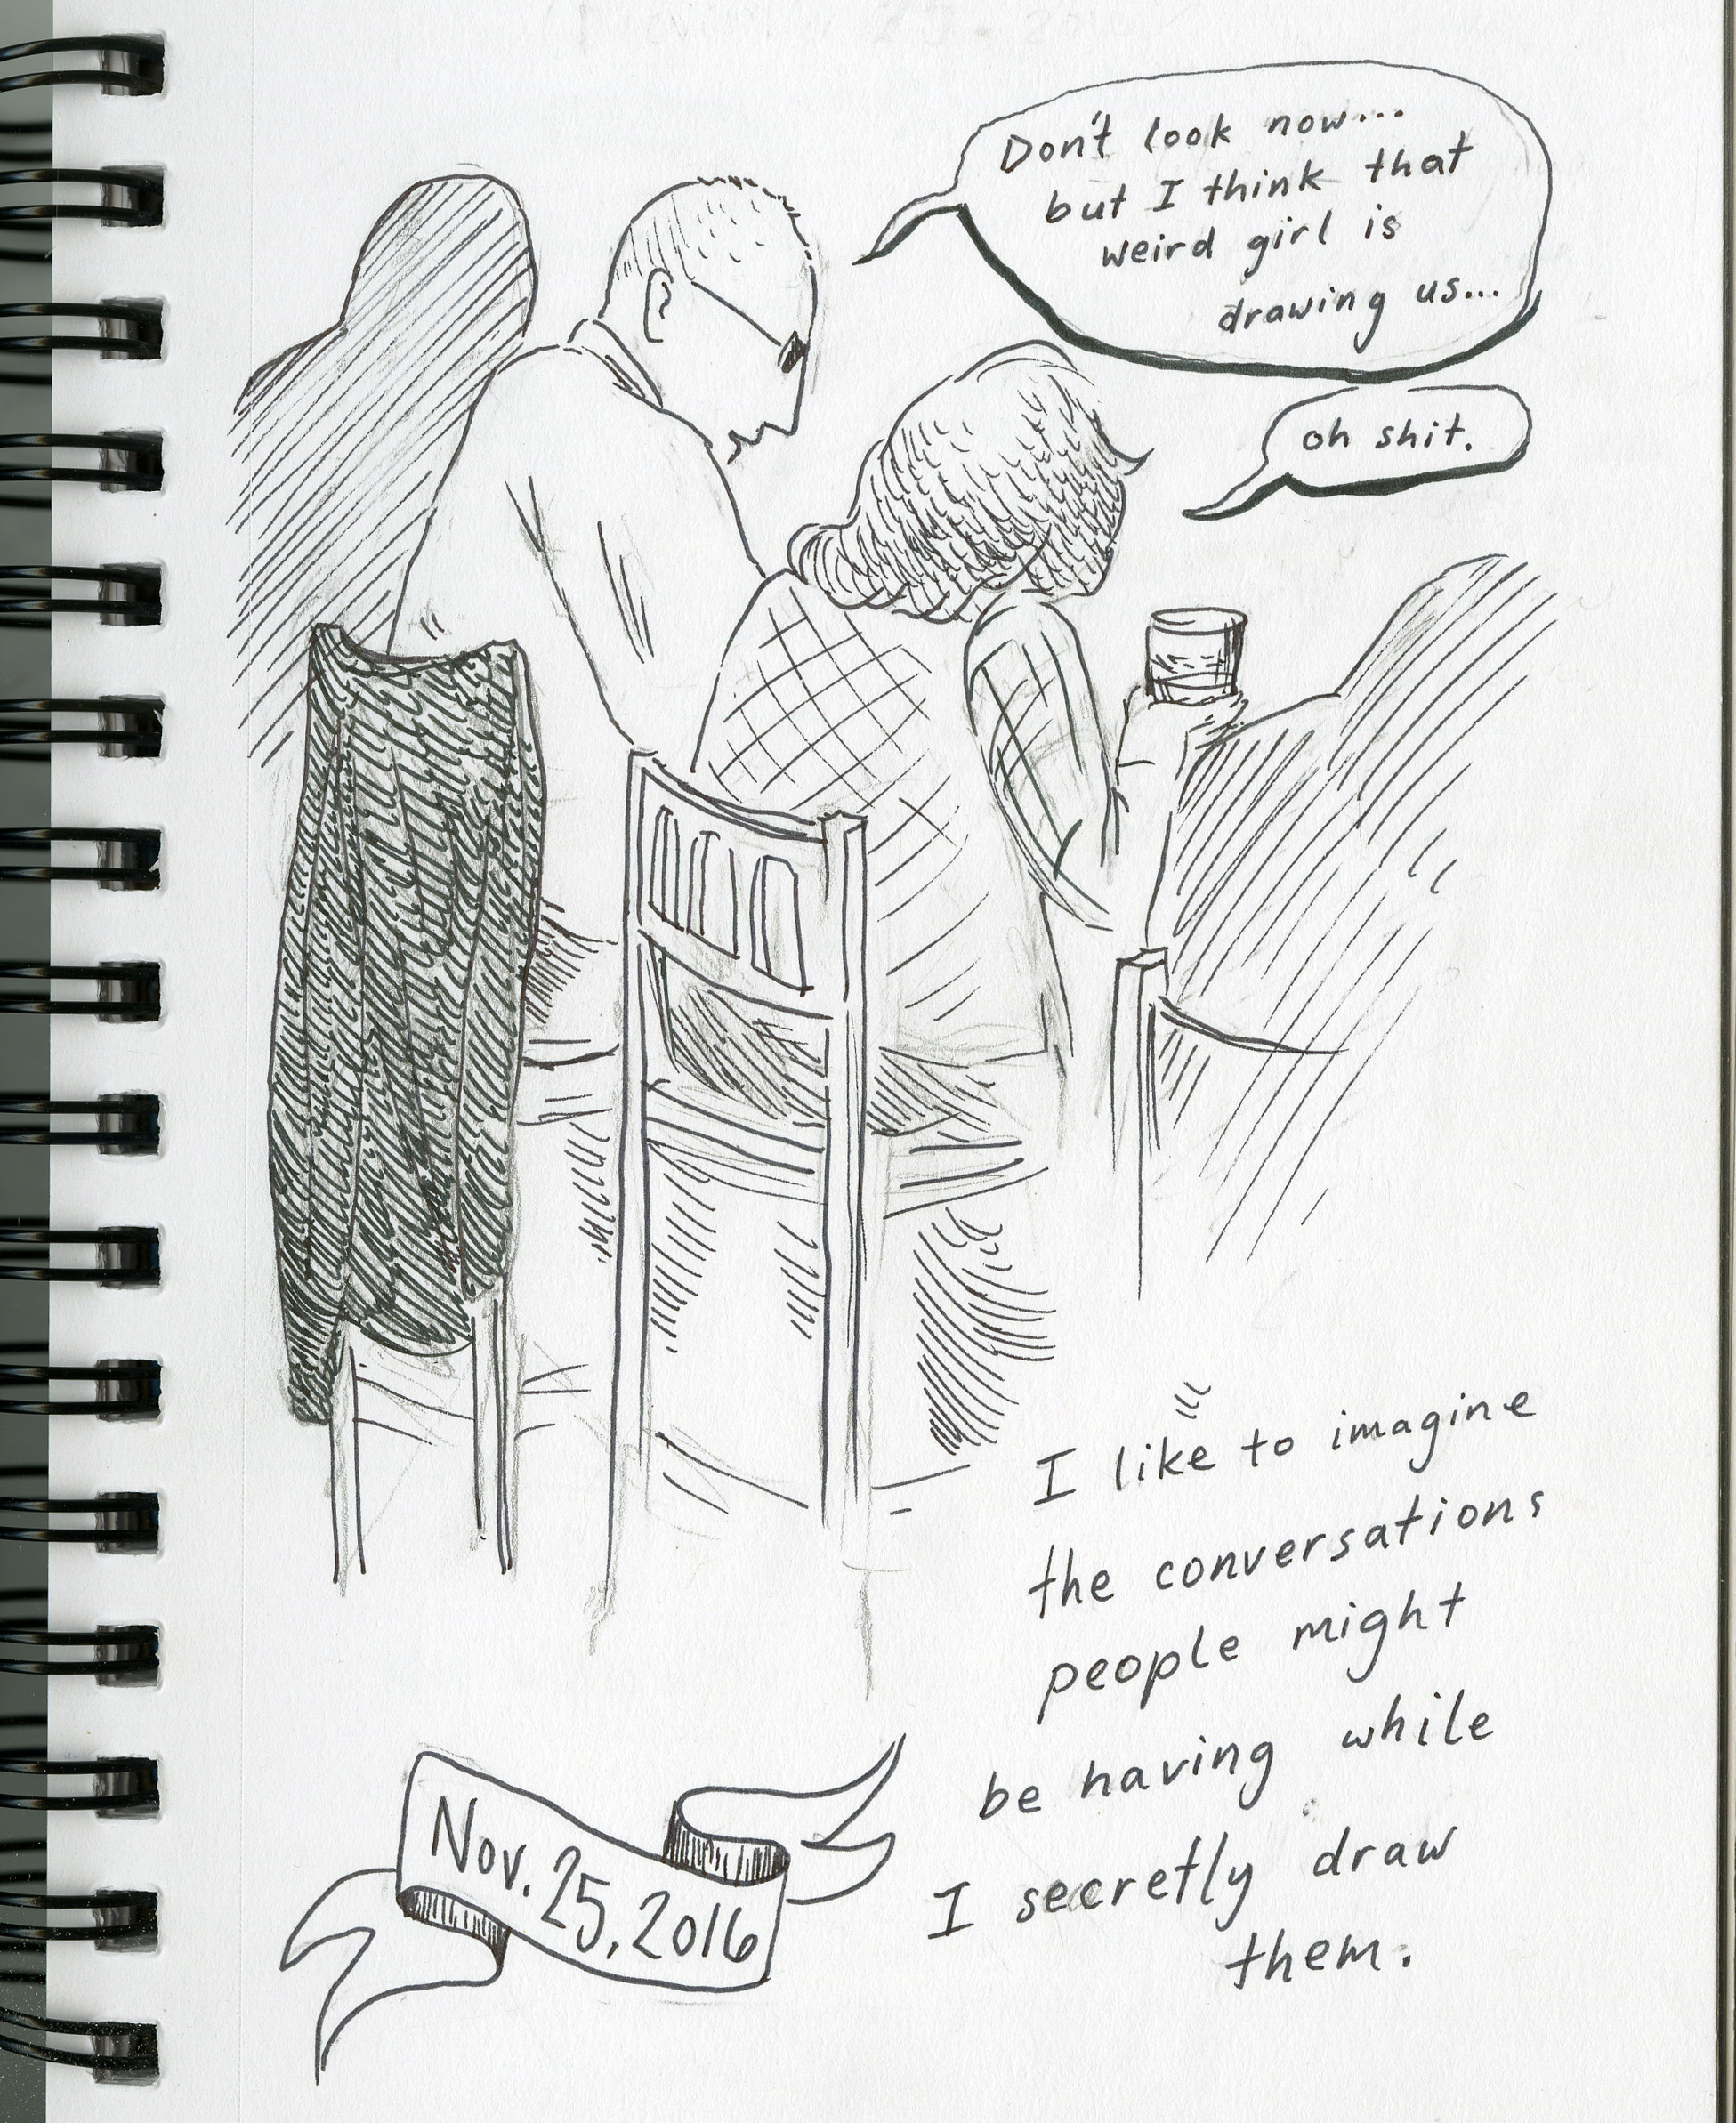 Don't look now...
but I think that
weird girl is
drawing us...
oh shit.
I like to imagine
the conversations
people might
be having while
I secretly draw
them.
Nov. 25, 2016